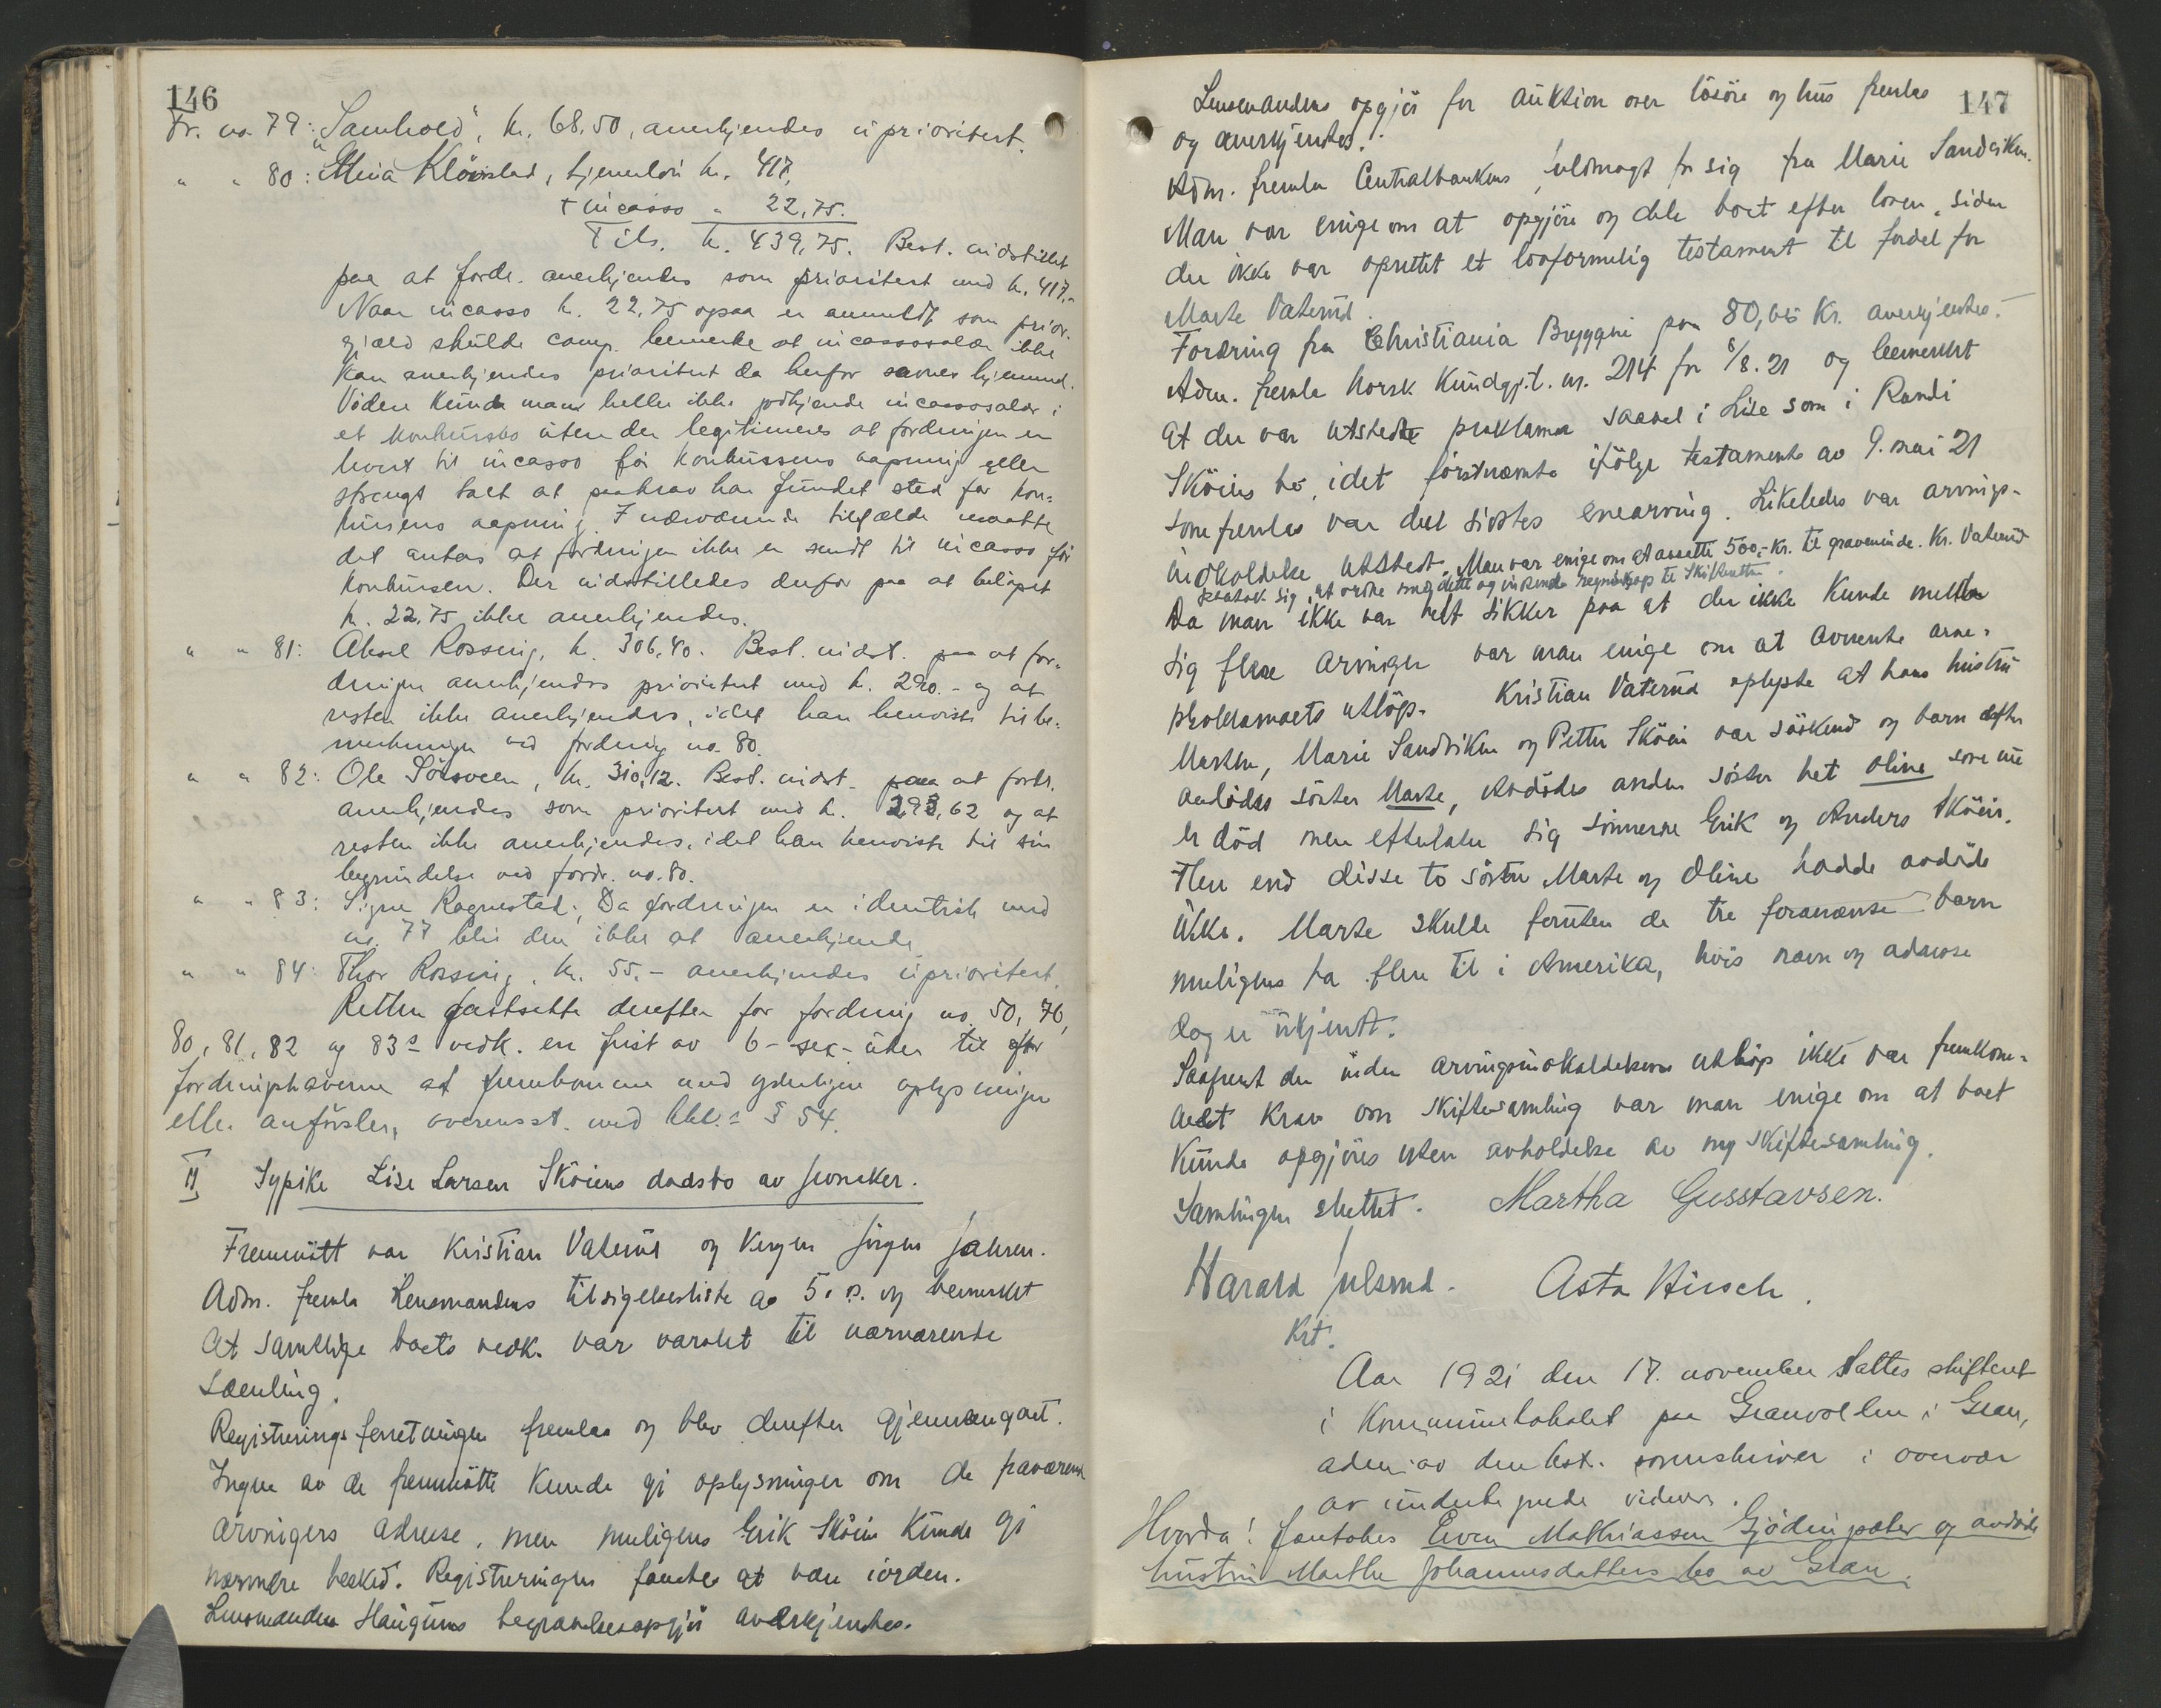 146
Fr. no. 79: "Samhold", kr. 68.50, anerkjendes uprioritert.
" " 80: Mina Klövstad, tjenerlön kr. 417,
+ incasso " 22,75.
Tils. kr. 439,75. Best. indstillet
paa at fordr. anerkjendes som prioritert med kr. 417.-
Naar incasso kr. 22,75 ogsaa er anmeldt som prior.
gjæld skulde comp. bemerke at incassosalær ikke
kan anerkjendes prioritert da herfor savnes hjemmel.
Videre kunde man heller ikke godkjende incassosalær i
et konkursbo uten der legitimeres at fordringen er
levert til incasso før konkursens aapning eller
strengt talt at paakrav har fundet sted før kon-
kursens aapning. I nærværende tilfælde maatte
det antas at fordringen ikke er sendt til incasso før
konkursen. Der indstilledes derfor paa at beløpet
kr. 22.75 ikke anerkjendes.
" " 81: Aksel Rossing, kr. 306,40. Best. indst. paa at for-
dringen anerkjendes prioritert med kr. 290.- og at
resten ikke anerkjendes, idet han henviste til be-
merkningen ved fordring no. 80.
" " 82: Ole Sörsveen, kr. 310,12. Best. indst. paa at fordr.
anerkjendes som prioritert med kr. 293,62 og at
resten ikke anerkjendes, idet han henviste til sin
begrundelse ved fordr. no. 80.
" " 83: Signe Ragnestad; Da fordringen er identisk med
no. 77 blir den ikke at anerkjende.
" " 84: Thor Rossing, kr. 55.- anerkjendes uprioritert.
Retten fastsatte derefter for fordring no. 50, 76,
80, 81, 82 og 83 vedk. en frist av 6 - sex - uker til
fordringshaverne at fremkomme med yderligere oplysninger
eller anförsler, overensst. med kkl. § 54.
II Sypike Lise Larsen Sköiens dødsbo av Jevnaker.
Fremmött var Kristian Vaterud og vergen Jörgen Jahren.
Adm. fremla lensmandens tilsigelsesliste av 5. ds. og bemerket
at samtlige boets vedk. var varslet til nærværende
samling.
Registreringsforretningen fremlaa og blev derefter gjennemgaat.
Ingen av de fremmötte kunde gi oplysninger om de fraværende
arvingers adresse, men muligens Erik Sköien kunde gi
nærmere besked. Registreringen fandtes at være iorden.
Lensmanden Haugums begravelsesopgjör anerkjendtes.
147
Lensmandens opgjör for auktion over lösöre og hus fremlaa
og anerkjendtes.
Adm. fremla Centralbankens fuldmagt for sig fra Marie Sandviken.
Man var enige om at opgjöre og dele boet efter loven, siden
der ikke var oprettet et lovformelig testament til fordel for
Marte Vaterud.
Fordring fra Christiania Bryggeri paa 80,65 kr. anerkjendtes.
Adm. fremla norsk Kundgj.t. nr. 214 for 8/8.21 og bemerket
at der var utstedt proklama saavel i Lise som i Randi
Sköiens bo, idet förstnævnte ifölge testamente av 9. mai 21
som fremlaa var den sidstes enearving. Likeledes var arvings-
indkaldelse utstedt. Man var enige om at avsette 500,- kr. til gravminde. Kr. Vaterud
paatok sig, at ordne med dette og indsende regnskap til skifteretten.
Da man ikke var helt sikker paa at der ikke kunde melde
sig flere arvinger var man enige om at avvente arve-
proklamaets utlöp. Kristian Vaterud oplyste at hans hustru
Marthe, Marie Sandviken og Petter Sköien var söskend og barn efter
avdödes söster Marte, Avdödes anden söster het Oline som nu
er död men efterlater sig sönnerne Erik og Anders Sköien.
Flere end disse to söstre Marte og Oline hadde avdöde
ikke. Marte skulde foruten de tre forannævnte barn
muligens ha flere til i Amerika, hvis navn og adresse
dog er ukjendt.
Saafremt der inden arvingsindkaldelsens utlöp ikke var fremkom-
met krav om skiftesamling var man enige om at boet
kunde opgjöres uten avholdelse av ny skiftesamling.
Samlingen sluttet. Martha Gusstavsen.
Harald Julsrud. Asta Hirsch.
Kst.
Aar 1921 den 17. november sattes skifteret
i Kommunelokalet paa Granvollen i Gran,
adm. av den kst. sorenskriver i overvær
av undertegnede vidner.
Hvorda! foretokes Even Mathiassen Gjödingsæter og avdöde
hustru Marthe Johannesdatters bo av Gran.